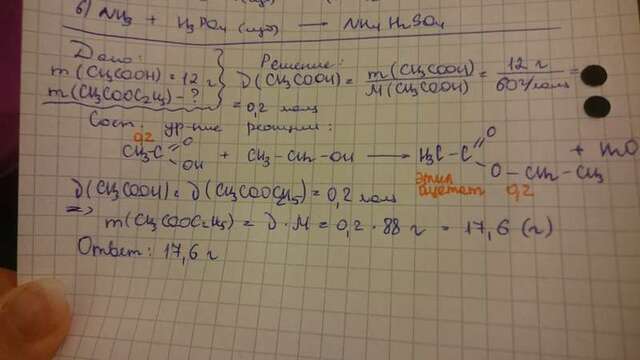 б) NH3 + H3PO4 (изб) → NH4 H2SO4
Дано:
m(CH3COOH) = 12 г
m(CH3COOC2H5) - ?
Решение:
ν(CH3COOH) = m(CH3COOH) / M(CH3COOH) = 12 г / 60 г/моль =
= 0,2 моль
Сост. ур-ние реакции:
0,2
CH3-C O OH + CH3-CH2-OH → H3C-C O O-CH2-CH3 + H2O
этил ацетат 0,2
ν(CH3COOH) = ν(CH3COOC2H5) = 0,2 моль
=> m(CH3COOC2H5) = ν · M = 0,2 · 88 г = 17,6 (г)
Ответ: 17,6 г